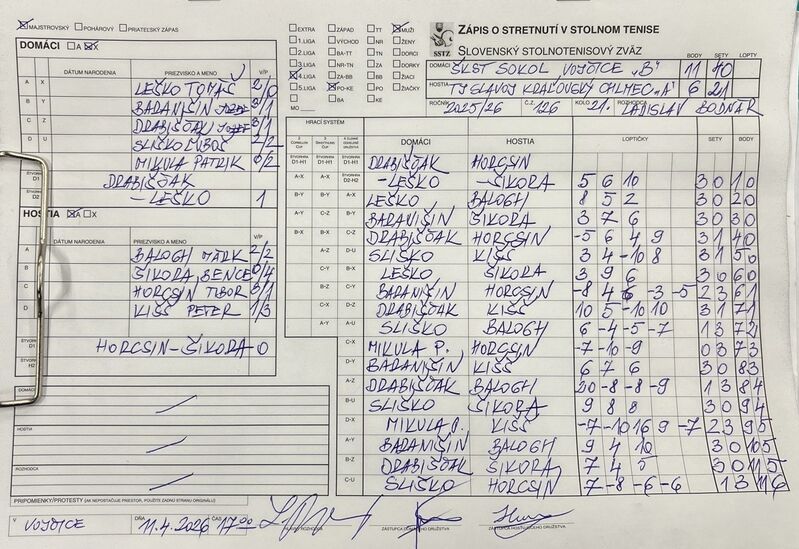 ☒ MAJSTROVSKÝ ☐ POHÁROVÝ ☐ PRIATEĽSKÝ ZÁPAS
DOMÁCI ☐ A ☒ X
DÁTUM NARODENIA PRIEZVISKO A MENO V/P
A X LEŠKO TOMÁŠ 2/0
B Y BARANIŠIN
C Z DRABIŠČÁK 3/1
D U SLIŠKO ĽUBOŠ 2/2
MIKULA PATRIK 0/2
ŠTVORHRA D1 DRABIŠČAK
- LEŠKO 1
HOSTIA ☒ A ☐ X
DÁTUM NARODENIA PRIEZVISKO A MENO V/P
A BALOGH MÁRK 2/2
B ŠIKORA BENCE 0/4
C HORCSIN TIBOR 3/1
D KIŠŠ PETER 1/3
ŠTVORHRA D1
HORCSIN - ŠIKORA - 0
ŠTVORHRA H2
DOMÁCI
HOSTIA
ROZHODCA
PRIPOMIENKY/PROTESTY (AK NEPOSTAČUJE PRIESTOR, POUŽITE ZADNÚ STRANU ORIGINÁLU)
V VOJČICE DŇA 11.4.2026 ČAS 17:00
☐ EXTRA ☐ ZÁPAD ☐ TT ☒ MUŽI
☐ 1.LIGA ☐ VÝCHOD ☐ NR ☐ ŽENY
☐ 2.LIGA ☐ BA-TT ☐ TN ☐ DORCI
☐ 3.LIGA ☐ NR-TN ☐ ZA ☐ DORKY
☒ 4.LIGA ☐ ZA-BB ☐ BB ☐ ŽIACI
☐ 5.LIGA ☒ PO-KE ☐ PO ☐ ŽIAČKY
MO ☐ BA ☐ KE
SSTZ
ZÁPIS O STRETNUTÍ V STOLNOM TENISE
SLOVENSKÝ STOLNOTENISOVÝ ZVÄZ
BODY SETY LOPTY
DOMÁCI ŠKST SOKOL VOJČICE „B“ 11 40
HOSTIA TJ SLAVOJ KRÁĽOVSKÝ CHLMEC „A“ 6 21
ROČNÍK 2025/26 Č.Z. 126 KOLO 21. ROZHODCA LADISLAV BODNÁR
HRACÍ SYSTÉM
DOMÁCI HOSTIA LOPTIČKY SETY BODY
DRABIŠČAK HORCSIN
- LEŠKO - ŠIKORA 5 6 10 3 0 1 0
LEŠKO BALOGH 8 5 2 3 0 2 0
BARANIŠIN ŠIKORA 3 7 6 3 0 3 0
DRABIŠČAK HORCSIN -5 6 4 9 3 1 4 0
SLIŠKO KIŠŠ 3 4 -10 8 3 1 5 0
LEŠKO ŠIKORA 3 9 6 3 0 6 0
BARANIŠIN HORCSIN -8 4 6 -3 -5 2 3 6 1
DRABIŠČAK KIŠŠ 10 5 -10 10 3 1 7 1
SLIŠKO BALOGH 6 -4 -5 -7 1 3 7 2
MIKULA P. HORCSIN -7 -10 -9 0 3 7 3
BARANIŠIN KIŠŠ 6 7 6 3 0 8 3
DRABIŠČAK BALOGH 20 -8 -8 -9 1 3 8 4
SLIŠKO ŠIKORA 9 8 8 3 0 9 4
MIKULA P. KIŠŠ -7 -10 16 9 -7 2 3 9 5
BARANIŠIN BALOGH 9 4 10 3 0 10 5
DRABIŠČAK ŠIKORA 7 4 5 3 0 11 5
SLIŠKO HORCSIN 7 -8 -6 -6 1 3 11 6